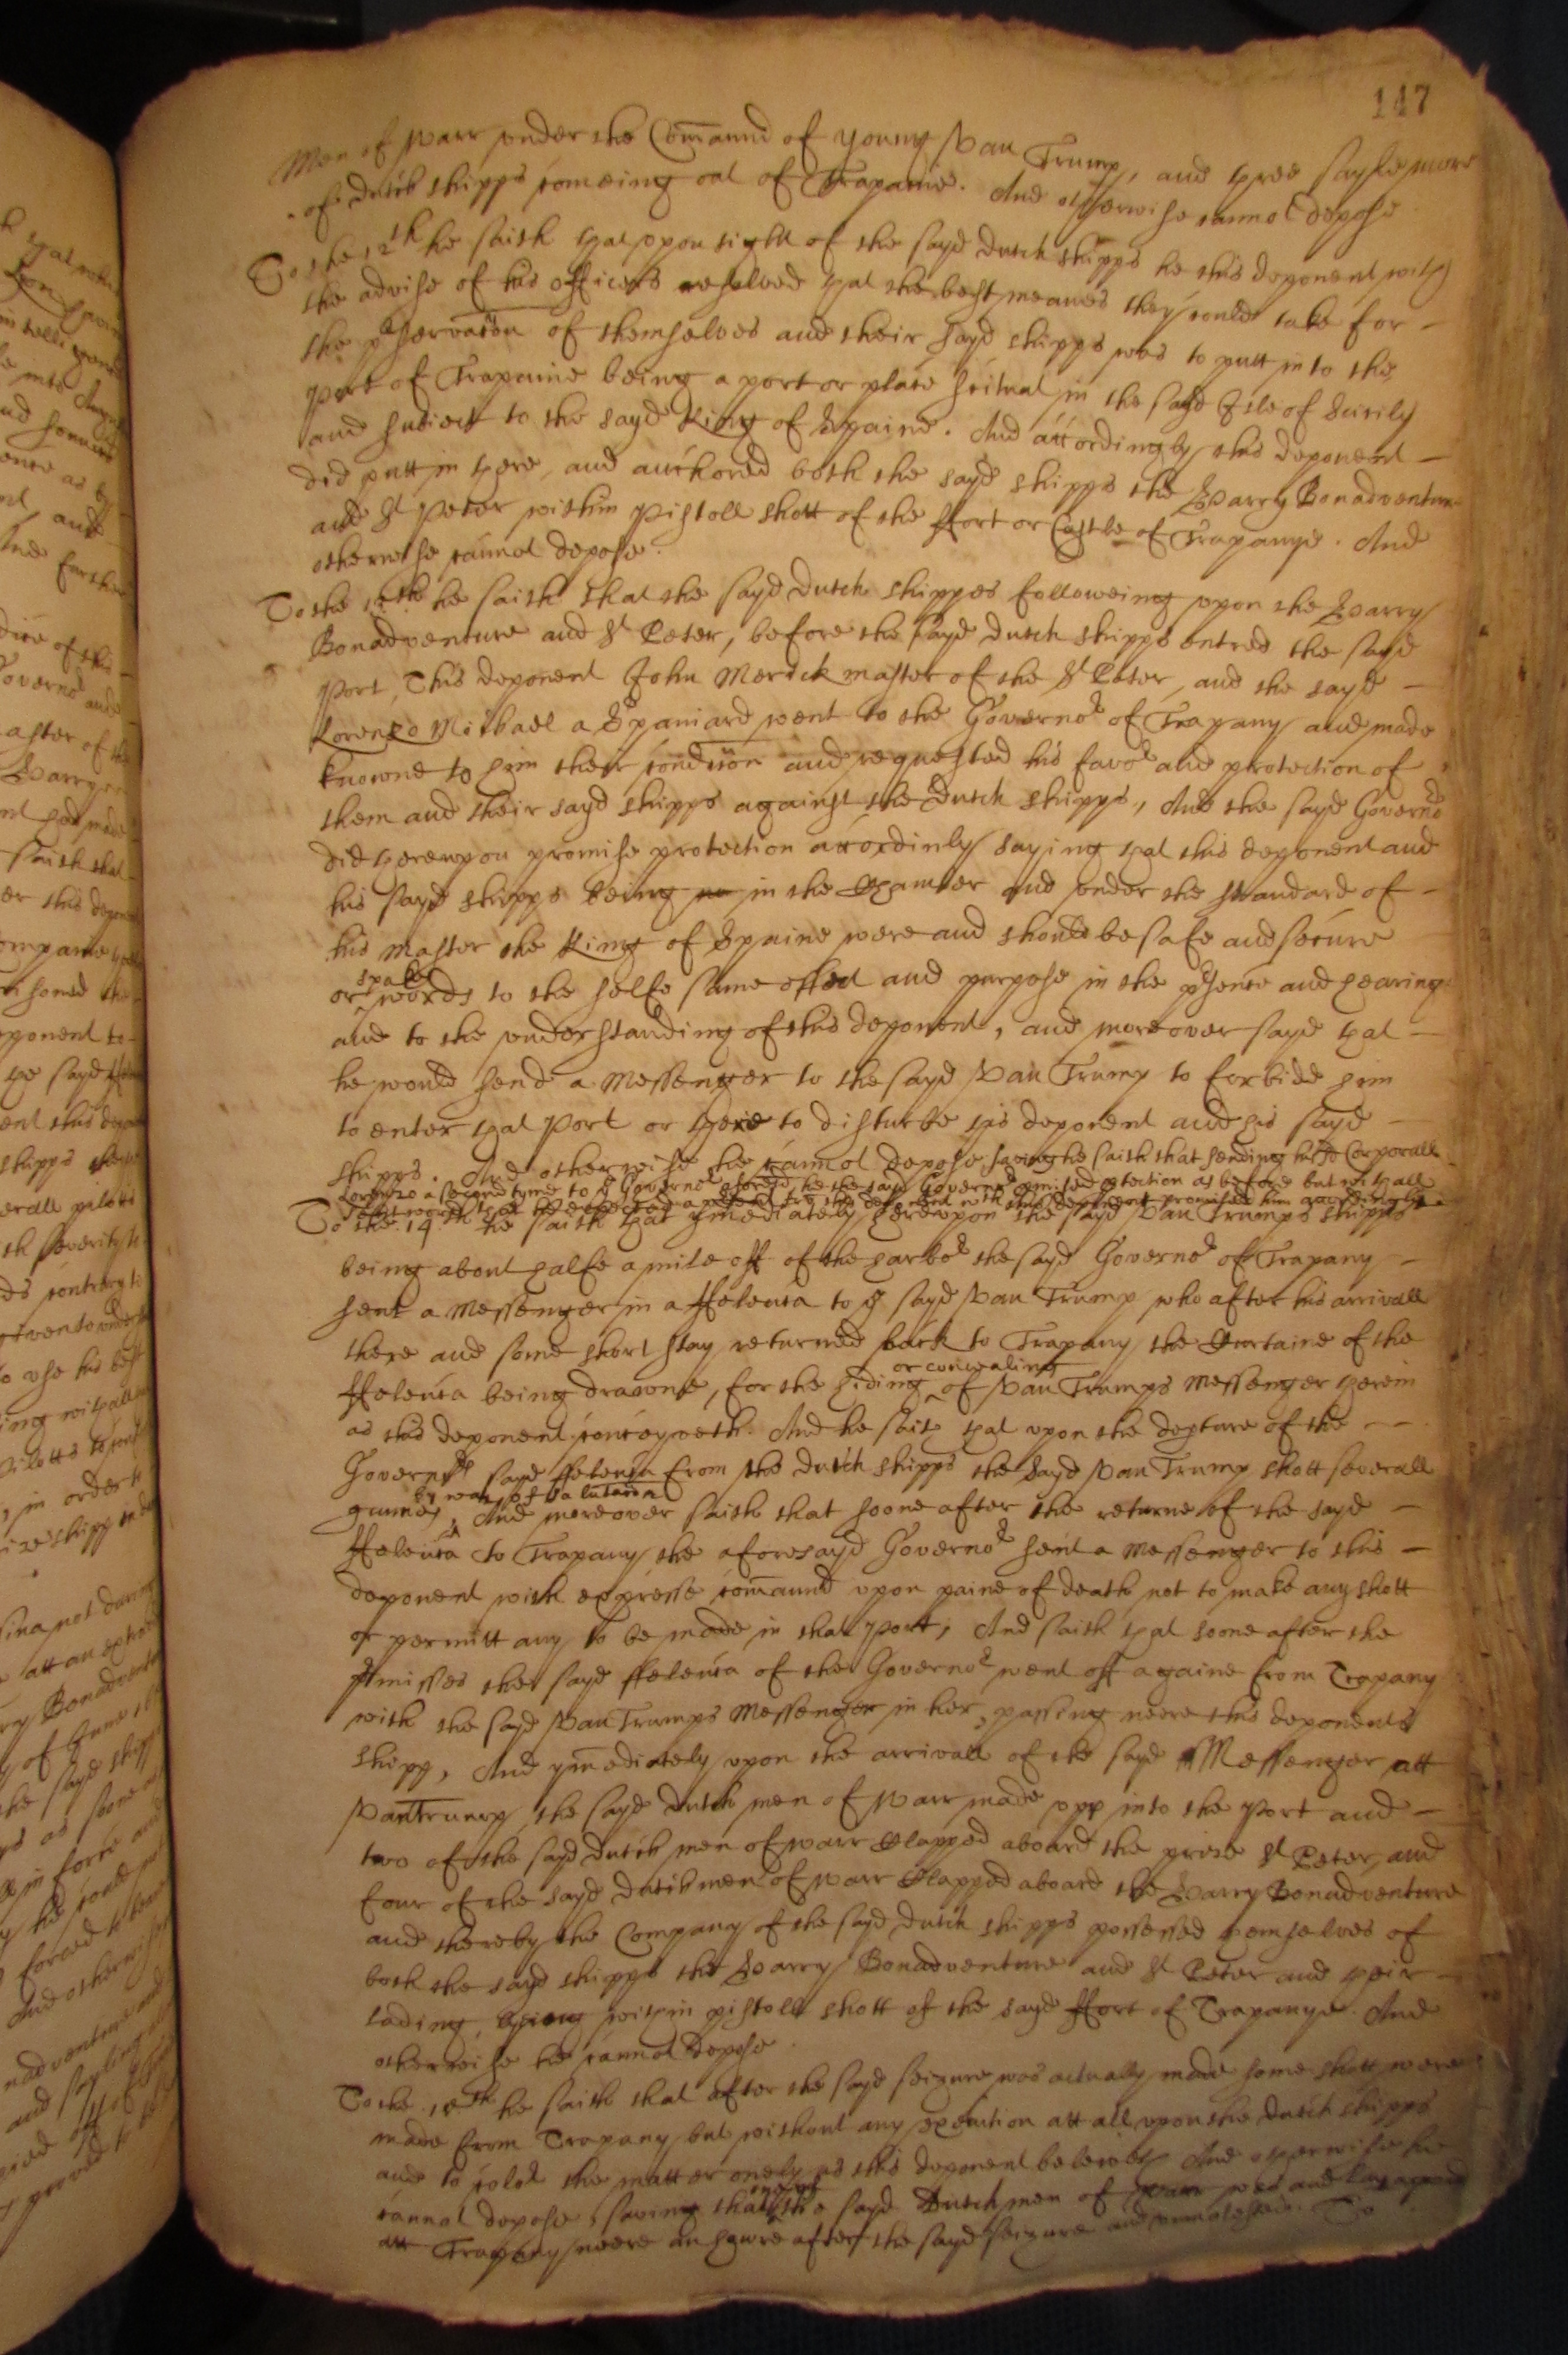 147
Men of Warr under the Com̄aund of young Van Trump, and three sayle more
of dutch shipps comeing out of Trapanie. And otherwise cannot depose
To the 12th he saith that upon sight of the sayd dutch shipps he this deponent with
the advise of his officers resolved that the best meanes they could take for -
the pservac̄on of themselves and their sayd shipps was to putt in to the
port of Trapanie being a port or place scituat in the sayd Isle of Sicily
and subiect to the sayd King of Spaine. And accordingly this deponent -
did putt in there, and anchored both the sayd shipps the Harry Bonadventure
and St Peter within pistoll shott of the ffort or Castle of Trapanye. And
otherwise cannot depose.
To the 13th he saith that the sayd dutch shippes followeing upon the Harry
Bonadventure and St Peter, before the sayd dutch shipps entred the sayd
Port, This deponent John Merick master of the St Peter, and the sayd -
Lorenzo Michael a Spaniard went to the Governor of Trapany and made
knowne to him their condic̄on and requested his favor and protection of
them and their sayd shipps against the dutch shipps, And the sayd Governor
did thereupon promise protection accordinly saying that this deponent and
his sayd shipps being in the Chamber and under the standard of -
his master the King of Spaine were and should be safe and secure
spake
or words to the selfe same effect and purpose in the psence and hearing
and to the understanding of this deponent, and moreover sayd that -
he would send a Messenger to the sayd Van Trump to forbidd him
to enter that Port or there to disturbe this deponent and his sayd -
shipps. And otherwise he cannot depose saving he saith that sending his Corporall
Lorenzo a second tyme to ye Governor aforesd he the sayd Governor pmised ptection as before but withall
To the 14th he saith that ym̄ediately hereupon the sayd Van Trumps shipps
being about halfe a mile off of the harbor the sayd Governor of Trapany -
sent a Messenger in a ffelouca to ye sayd Van Trump who after his arrivall
there and some short stay returned back to Trapany the Curtaine of the
or concealing
ffeleuca being drawne, for the hiding of Van Trumps Messenger therein
as this deponent conceyveth. And he saith that upon the depture of the - -
Governors sayd ffeleuca from the dutch shipps the sayd Van Trump shott severall
by way of salutac̄on
gunnes, And moreover saith that soone after the returne of the sayd -
ffeleuca to Trapany the aforesayd Governor sent a Messenger to this -
deponent with expresse com̄aund upon paine of death not to make any shott
or permitt any to be made in that Port, And saith that soone after the
pmisses the sayd ffeleuca of the Governor went off againe from Trapany
with the sayd Van Trumps Messenger in her, passing neere this deponents
shipp, And ym̄ediately upon the arrivall of the sayd Messenger att
Van Trump, the sayd dutch men of Warr made upp into the Port and -
two of the sayd dutch men of warr clapped aboard the prize St Peter, and
four of the sayd dutch men of warr clapped aboard the Harry Bonadventure
and thereby the Company of the sayd dutch shipps possessed themselves of
both the sayd shipps the Harry Bonadventure and St Peter and their -
lading, being within pistoll shott of the sayd ffort of Trapanye. And
otherwise he cannot depose.
To the 15th he saith that after the sayd seizure was actually made some shott were
made from Trapany but without any execution att all upon the dutch shipps
and to color the matter onely as this deponent beleiveth And otherwise he
cannot depose, saving that the sayd Dutch men of Warr
att Trapany neere an howre after the sayd seizure and unmolested. To